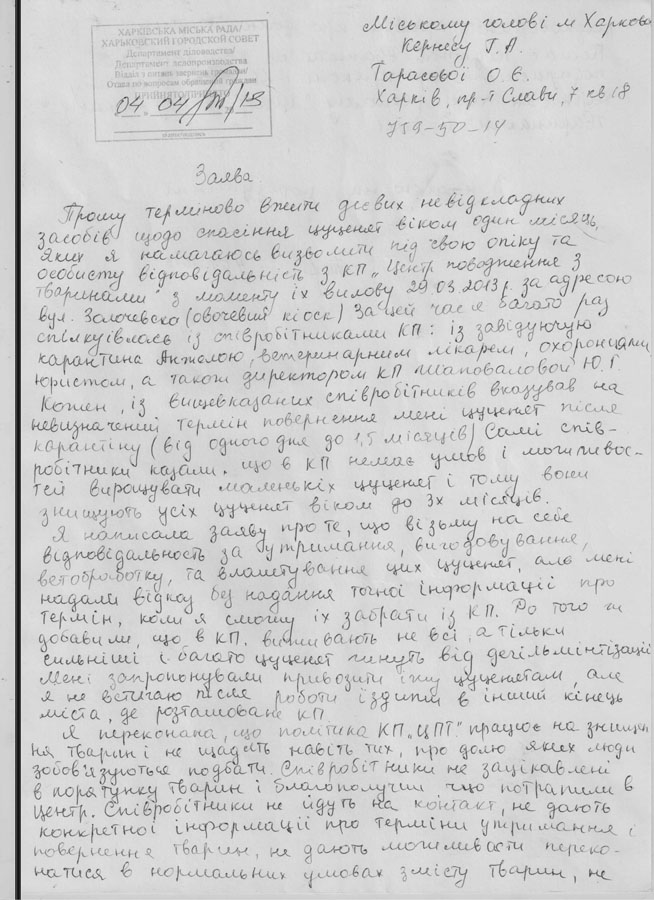 ХАРКІВСЬКА МІСЬКА РАДА/
ХАРЬКОВСКИЙ ГОРОДСКОЙ СОВЕТ
Департамент діловодства/
Департамент делопроизводства
Відділ з питань звернень громадян/
Отдел по вопросам обращений граждан
ПРИЙНЯТО/ПРИНЯТО
04 04 13
Міському голові м Харкова
Кернесу Г. А.
Тарасової О. Є.
Харків, пр-т Слави, 7 кв 18
719-50-14
Заява.
Прошу терміново вжити дієвих невідкладних
засобів щодо спасіння цуценят віком один місяць,
яких я намагаюсь визволити під свою опіку та
особисту відповідальність з КП „Центр поводження з
тваринами" з моменту їх вилову 29.03.2013р. за адресою
вул. Золочевска (овочевий кіоск) За цей час я багато раз
спілкуівлась із співробітниками КП: із завідуючую
карантина Анжолою, ветеринарним лікарем, охоронцами,
юристом, а також директором КП Шаповаловой Ю. Г.
Кожен, із вищевказаних співробітників вказував на
невизначений термін повернення мені цуценят після
карантіну (від одного дня до 1,5 місяців) Самі спів-
робітники казали, що в КП немає умов і можливос-
тей вирощувати маленькіх цуценят і тому вони
знищують усіх цуценят віком до 3х місяців.
Я написала заяву про те, що візьму на себе
відповідальность за утримання, вигодовування,
ветобработку, та влаштування цих цуценят, але мені
надали відказ без надання точної інформації про
термін, коли я сможу їх забрати із КП. До того ж
добавили, що в КП. виживають не всі, а тільки
сильніші і багато цуценят гинуть від дегільмінтізації
Мені запропонували привозити їжу цуценятам, але
я не встигаю після роботи їздити в інший кінець
міста, де розташоване КП.
Я переконана, що політика КП „ЦПТ" працює на знищен
ня тварин і не щадить навіть тих, про долю яких люди
зобов'язуються подбати. Співробітники не зацікавлені
в порятунку тварин і благополуччи що потрапили в
Центр. Співробітники не йдуть на контакт, не дають
конкретної інформації про терміни утримання і
повернення тварин, не дають можливасти переко-
натися в нормальних умовах змісту тварин, не